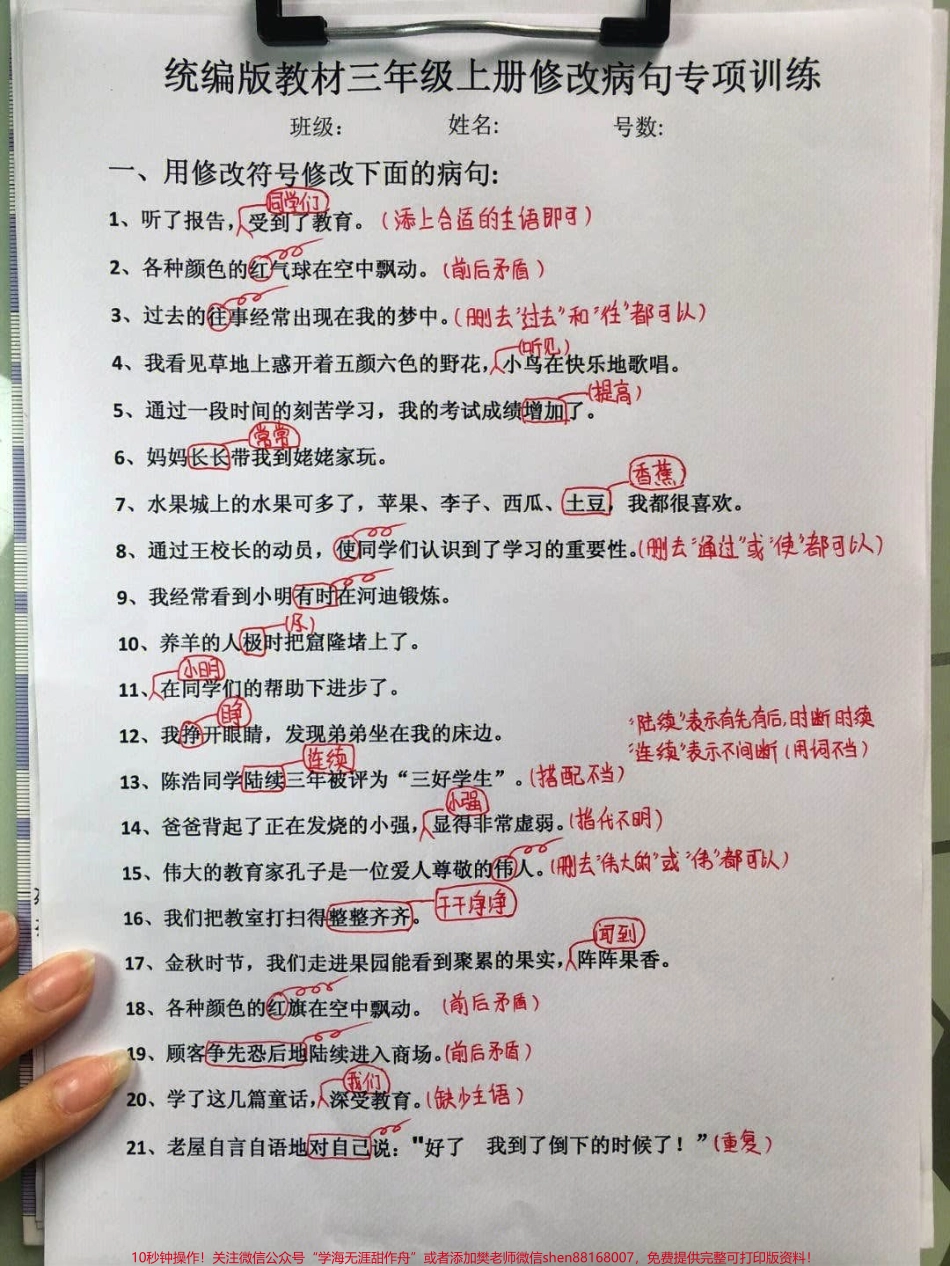 统编版教材三年级上册修改病句专项训练
班级： 姓名: 号数:
一、用修改符号修改下面的病句:
同学们
1、听了报告，受到了教育。（添上合适的主语即可）
2、各种颜色的红气球在空中飘动。（前后矛盾）
3、过去的往事经常出现在我的梦中。（删去“过去”和“往”都可以）
（听见）
4、我看见草地上惑开着五颜六色的野花，小鸟在快乐地歌唱。
（提高）
5、通过一段时间的刻苦学习，我的考试成绩增加了。
常常
6、妈妈长长带我到姥姥家玩。
香蕉
7、水果城上的水果可多了，苹果、李子、西瓜、土豆，我都很喜欢。
8、通过王校长的动员，使同学们认识到了学习的重要性。（删去“通过”或“使”都可以）
9、我经常看到小明有时在河迪锻炼。
（及）
10、养羊的人极时把窟隆堵上了。
小明
11、在同学们的帮助下进步了。
睁
12、我挣开眼睛，发现弟弟坐在我的床边。
“陆续”表示有先有后，时断时续
“连续”表示不间断（用词不当）
连续
13、陈浩同学陆续三年被评为“三好学生”。（搭配不当）
小强
14、爸爸背起了正在发烧的小强，显得非常虚弱。（指代不明）
15、伟大的教育家孔子是一位爱人尊敬的伟人。（删去“伟大的”或“伟”都可以）
干干净净
16、我们把教室打扫得整整齐齐。
闻到
17、金秋时节，我们走进果园能看到聚累的果实，阵阵果香。
18、各种颜色的红旗在空中飘动。（前后矛盾）
19、顾客争先恐后地陆续进入商场。（前后矛盾）
我们
20、学了这几篇童话，深受教育。（缺少主语）
21、老屋自言自语地对自己说："好了 我到了倒下的时候了！”（重复）
10秒钟操作！关注微信公众号“学海无涯甜作舟”或者添加樊老师微信shen88168007，免费提供完整可打印版资料！